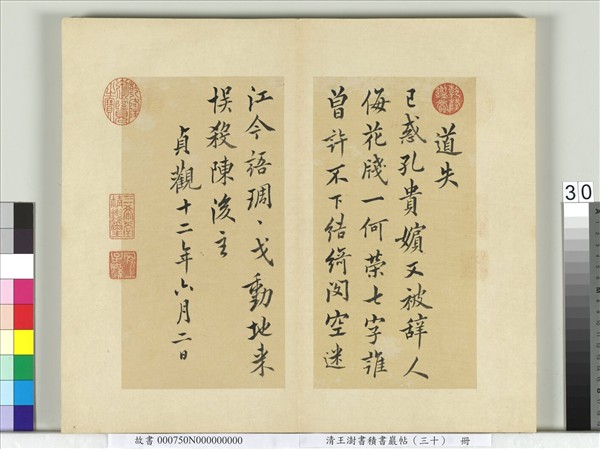 道失
已惑孔貴嬪又被辞人
侮花牋一何荣七字誰
曽許不下結綺閣空迷
江令語琱、戈動地来
悮殺陳後主
貞觀十二年六月二日
30
故書 000750N000000000
清王澍書積書巖帖（三十） 冊